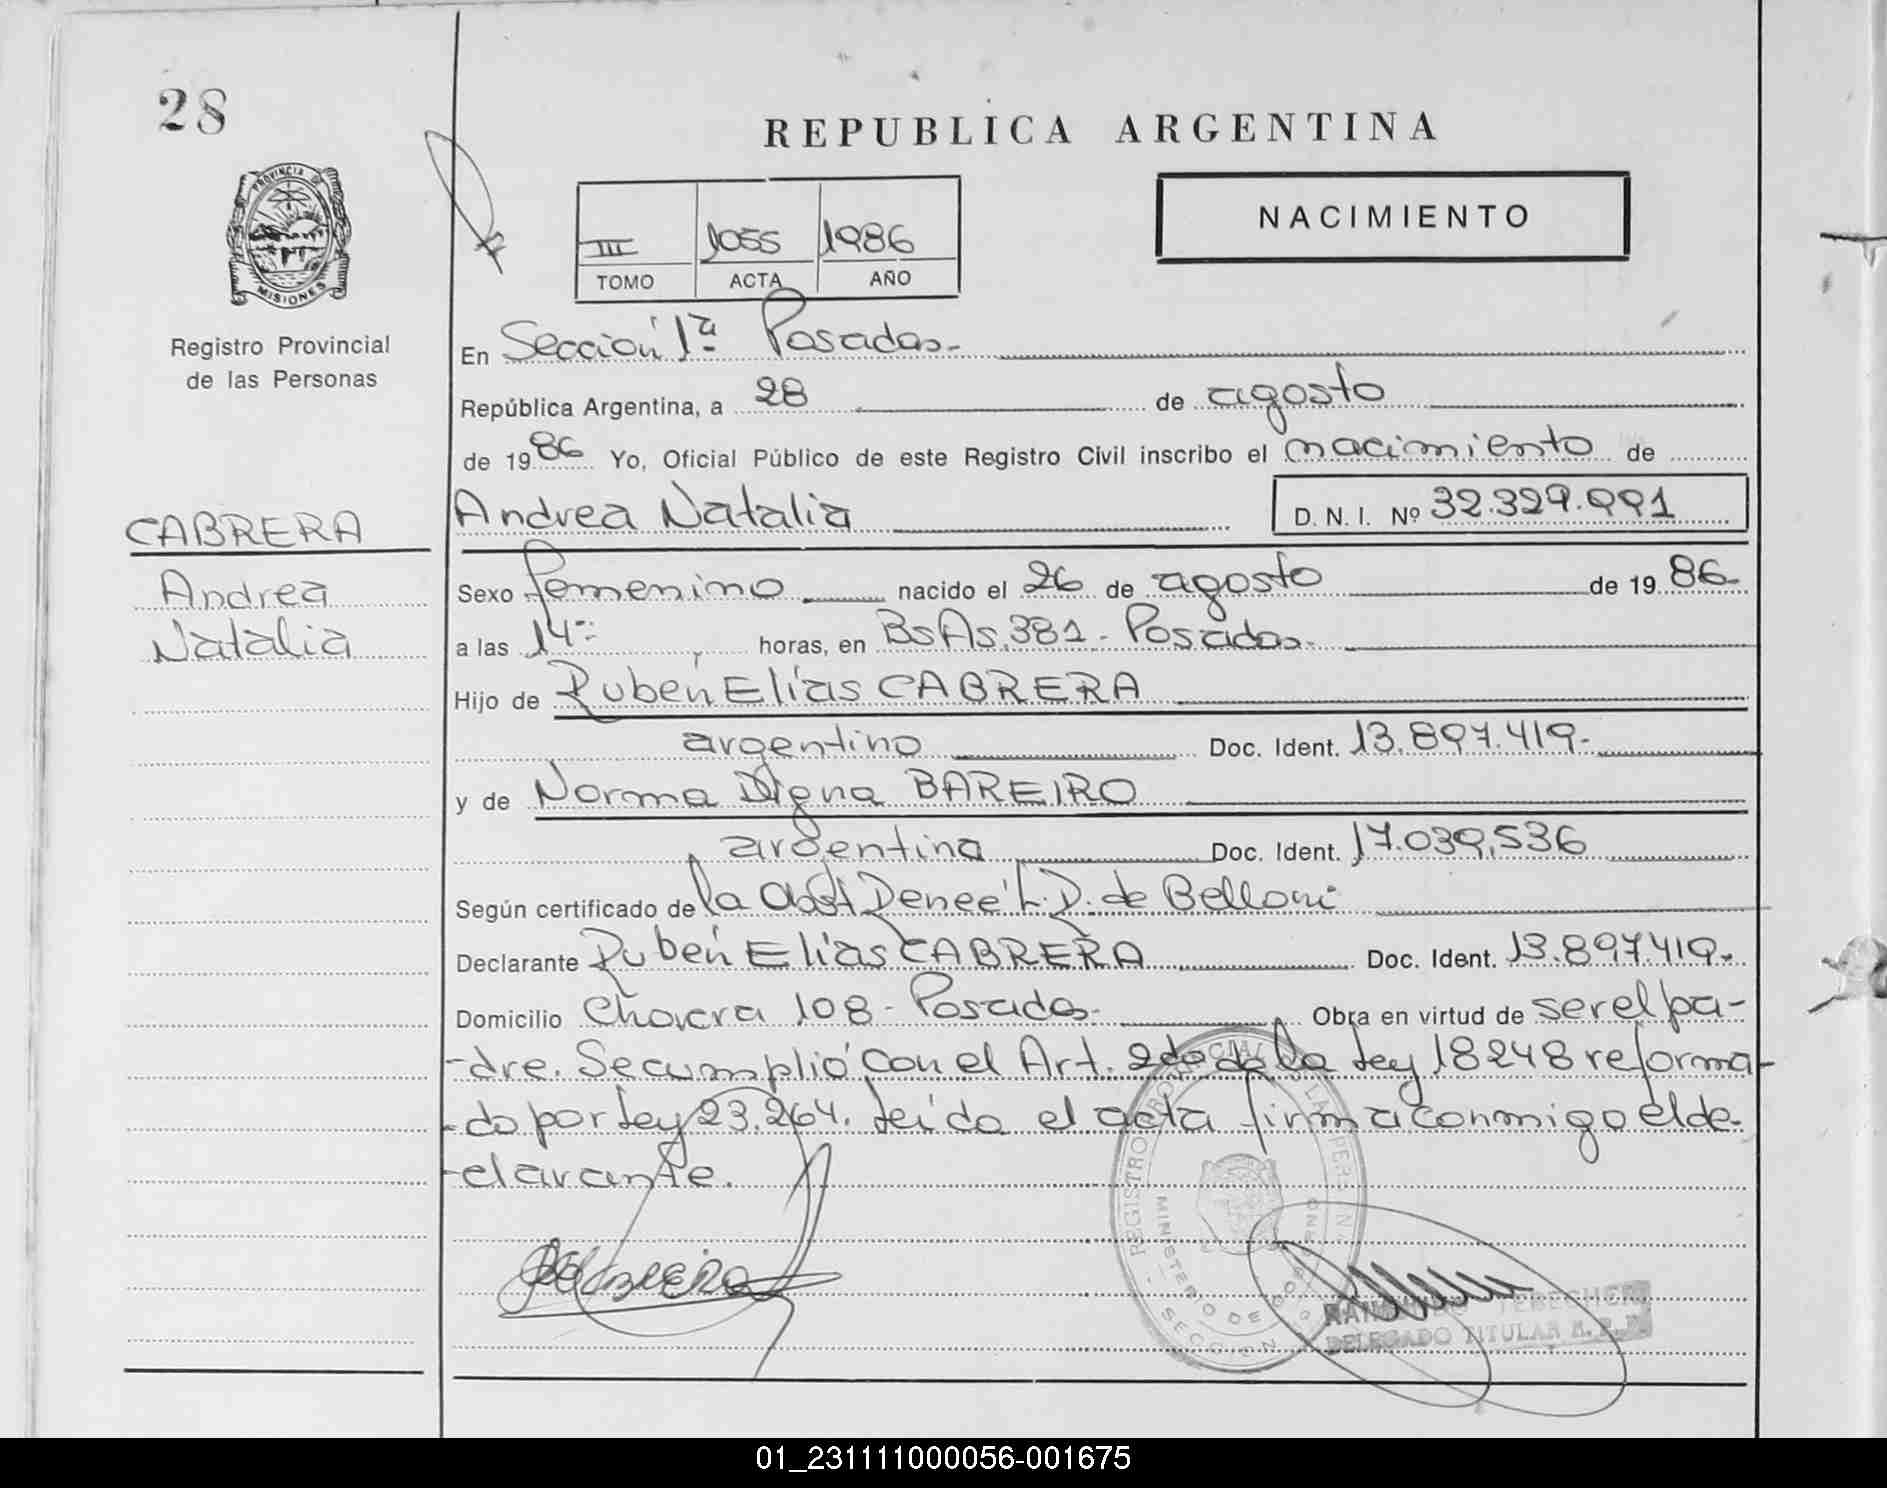 28
REPUBLICA ARGENTINA
PROVINCIA DE
MISIONES
Registro Provincial
de las Personas
III 1055 1986
TOMO ACTA AÑO
NACIMIENTO
En Sección 1ª Posadas.-
República Argentina, a 28 de agosto
de 1986 Yo, Oficial Público de este Registro Civil inscribo el nacimiento de
Andrea Natalia D. N. I. Nº 32.329.991
CABRERA
Andrea
Natalia
Sexo femenino nacido el 26 de agosto de 1986.
a las 14.- horas, en BsAs.381.- Posadas.-
Hijo de Rubén Elías CABRERA
argentino Doc. Ident. 13.897.419.-
y de Norma Digna BAREIRO
argentina Doc. Ident. 17.039.536
Según certificado de la Obst Denee L.D. de Belloni
Declarante Rubén Elías CABRERA Doc. Ident. 13.897.419.-
Domicilio Chacra 108.- Posadas.- Obra en virtud de ser el pa-
-dre. Se cumplió con el Art. 2do de la Ley 18248 reforma-
-do por Ley 23.264. Leída el acta firma conmigo el de-
-clarante.
DELEGADO TITULAR
01_231111000056-001675